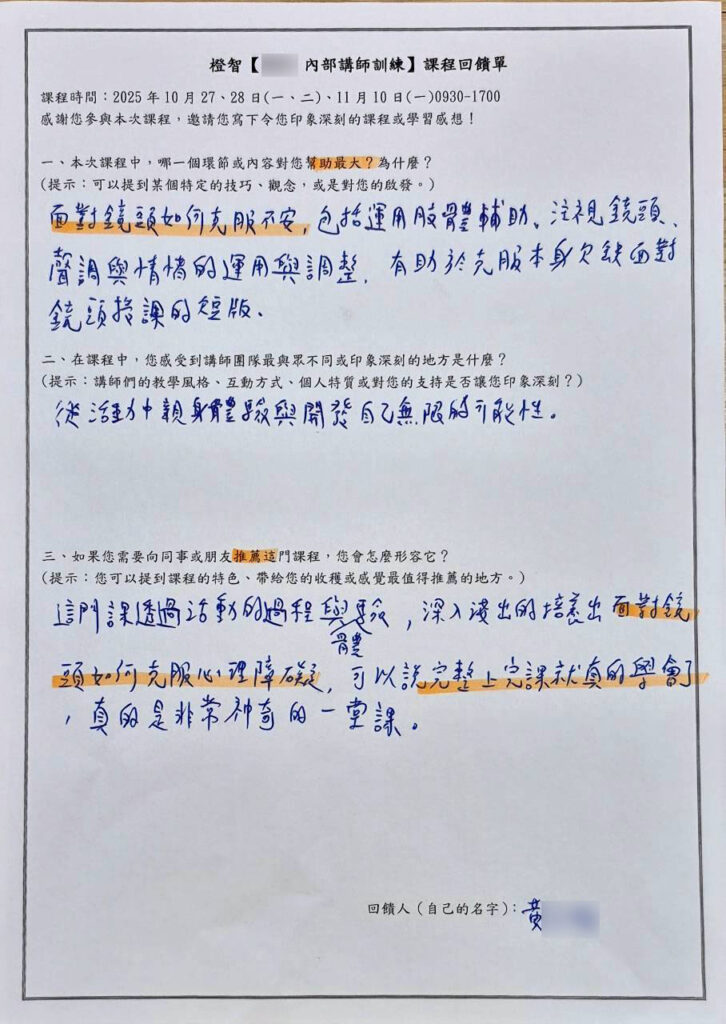 橙智【 內部講師訓練】課程回饋單
課程時間：2025 年 10 月 27、28 日(一、二)、11 月 10 日(一)0930-1700
感謝您參與本次課程，邀請您寫下令您印象深刻的課程或學習感想！
一、本次課程中，哪一個環節或內容對您幫助最大？為什麼？
(提示：可以提到某個特定的技巧、觀念，或是對您的啟發。)
面對鏡頭如何克服不安，包括運用肢體輔助、注視鏡頭、
聲調與情緒的運用與調整，有助於克服本身欠缺面對
鏡頭授課的短版。
二、在課程中，您感受到講師團隊最與眾不同或印象深刻的地方是什麼？
(提示：講師們的教學風格、互動方式、個人特質或對您的支持是否讓您印象深刻？)
從活動中親身體驗與開發自己無限的可能性。
三、如果您需要向同事或朋友推薦這門課程，您會怎麼形容它？
(提示：您可以提到課程的特色、帶給您的收穫或感覺最值得推薦的地方。)
這門課透過活動的過程與體驗，深入淺出的培養出面對鏡
頭如何克服心理障礙，可以說完整上完課就真的學會了
，真的是非常神奇的一堂課。
回饋人（自己的名字）：黃